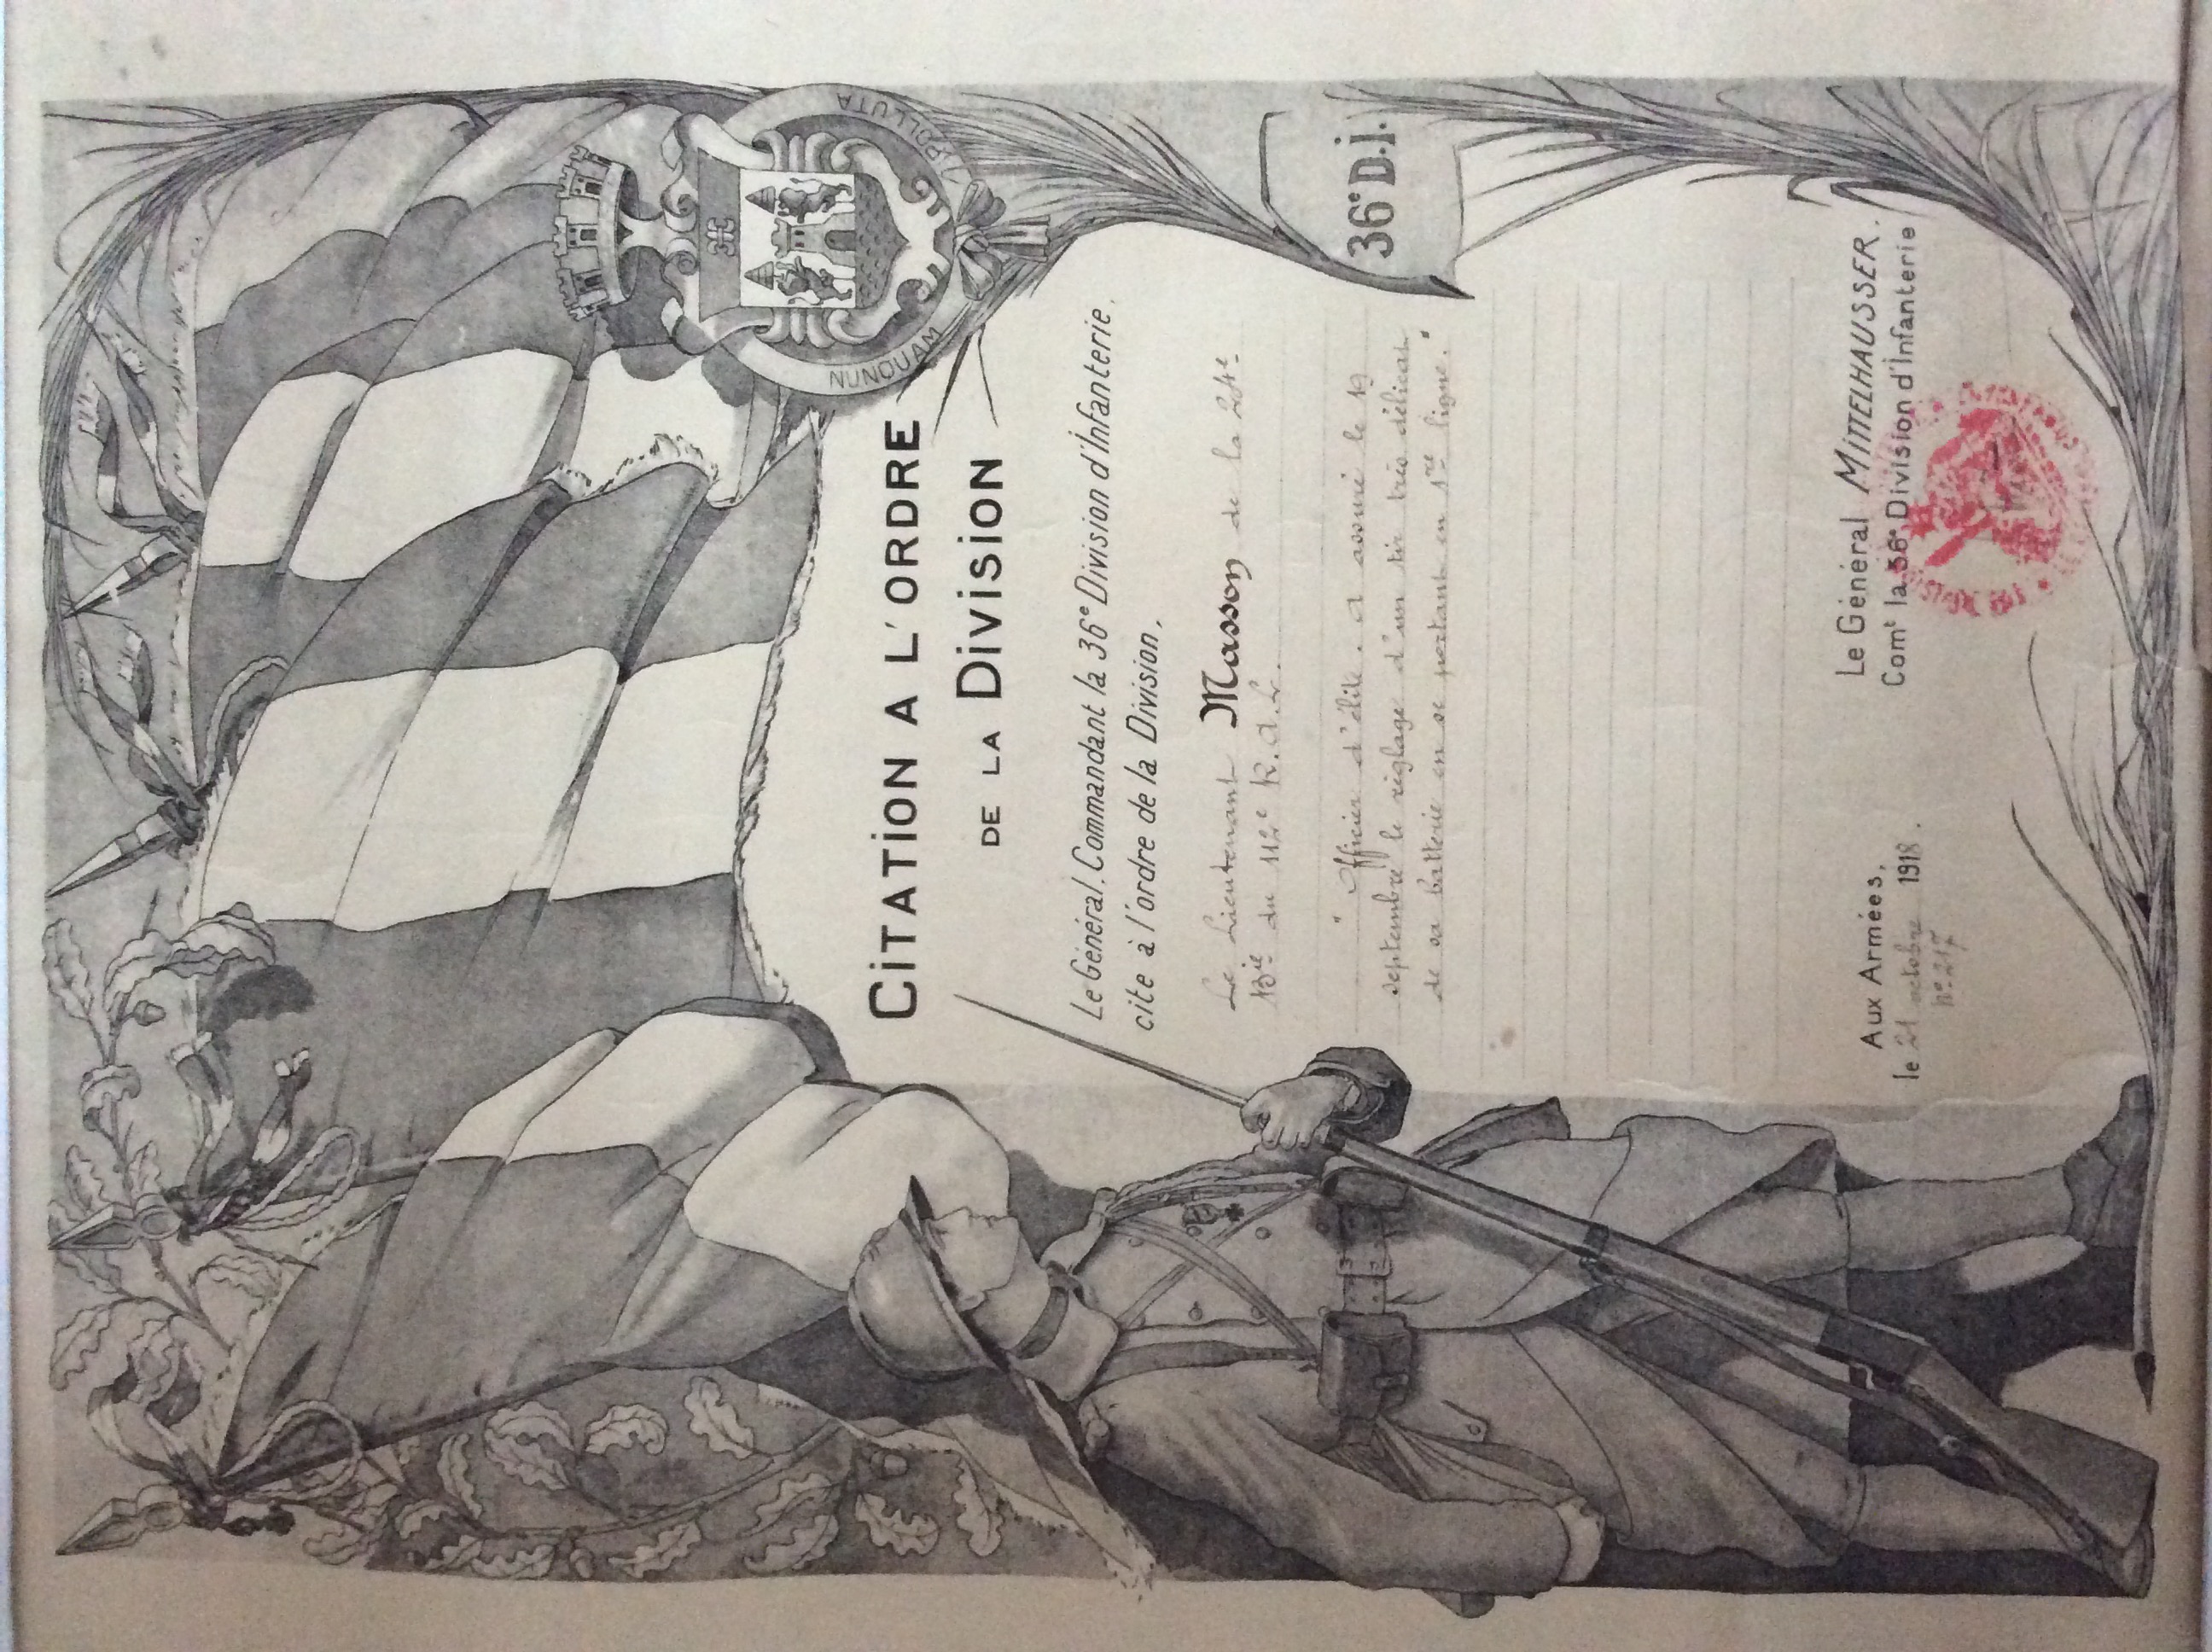 NUNQUAM POLLUTA
CITATION A L'ORDRE
DE LA DIVISION
36e D.I.
Le Général, Commandant la 36e Division d'Infanterie,
cite à l'ordre de la Division,
Le Lieutenant Masson de la 24e
Bie du 112e R.A.L.
" Officier d'élite. A assuré le 19
septembre le réglage d'un tir très délicat
de sa batterie en se portant en 1re ligne. "
Le Général MITTELHAUSSER.
Comt la 36e Division d'Infanterie
Aux Armées,
le 21 octobre 1918.
No 217